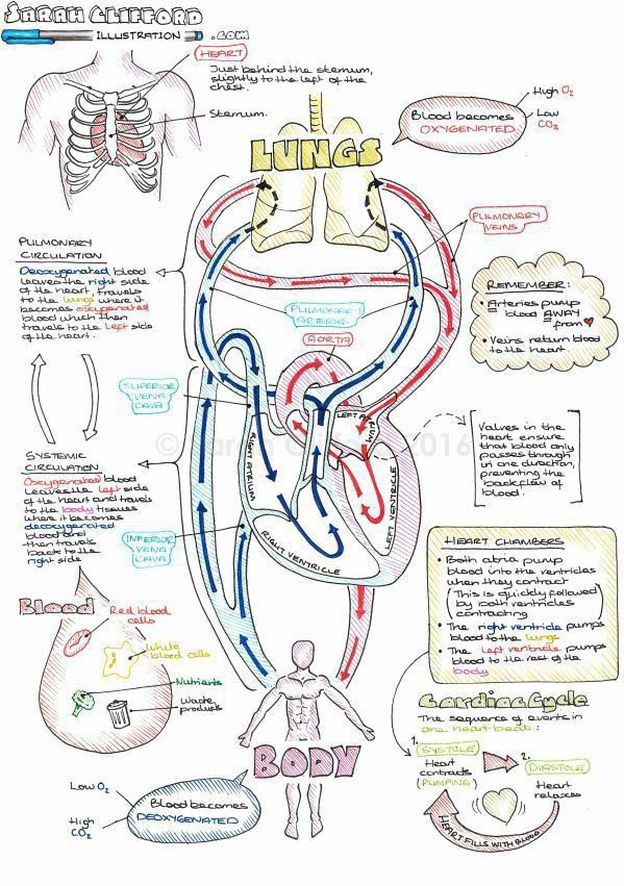 SARAH CLIFFORD
ILLUSTRATION .COM
HEART
Just behind the sternum,
slightly to the left of the
chest.
Sternum.
LUNGS
Blood becomes
OXYGENATED
High O₂
Low
CO₂
PULMONARY
VEINS
PULMONARY
CIRCULATION
Deoxygenated blood
leaves the right side
of the heart, travels
to the lungs where it
becomes oxygenated
blood which then
travels to the Left side
of the heart.
PULMONARY
ARTERIES
AORTA
REMEMBER:
• Arteries pump
blood AWAY
from
• Veins return blood
to the heart
SUPERIOR
VENA
CAVA
LEFT ATRIUM
RIGHT ATRIUM
LEFT VENTRICLE
RIGHT VENTRICLE
© Sarah Clifford 2016
Valves in the
heart ensure
that blood only
passes through
in one direction,
preventing the
backflow of
blood.
SYSTEMIC
CIRCULATION
Oxygenated blood
leaves the left side
of the heart and travels
to the body tissues
where it becomes
deoxygenated
blood and
then travels
back to the
right side
INFERIOR
VANA
CAVA
HEART CHAMBERS
• Both atria pump
blood into the ventricles
when they contract
(This is quickly followed
by both ventricles
contracting)
• The right ventricle pumps
blood to the lungs
• The Left ventricle pumps
blood to the rest of the
body
Blood
Red blood
cells
White
blood cells
Nutrients
Waste
products
BODY
Low O₂
High
CO₂
Blood becomes
DEOXYGENATED
Cardiac Cycle
The sequence of events in
one heart beat:
1.
SYSTOLE
Heart
contracts
(PUMPING)
2.
DIASTOLE
Heart
relaxes
HEART FILLS WITH BLOOD